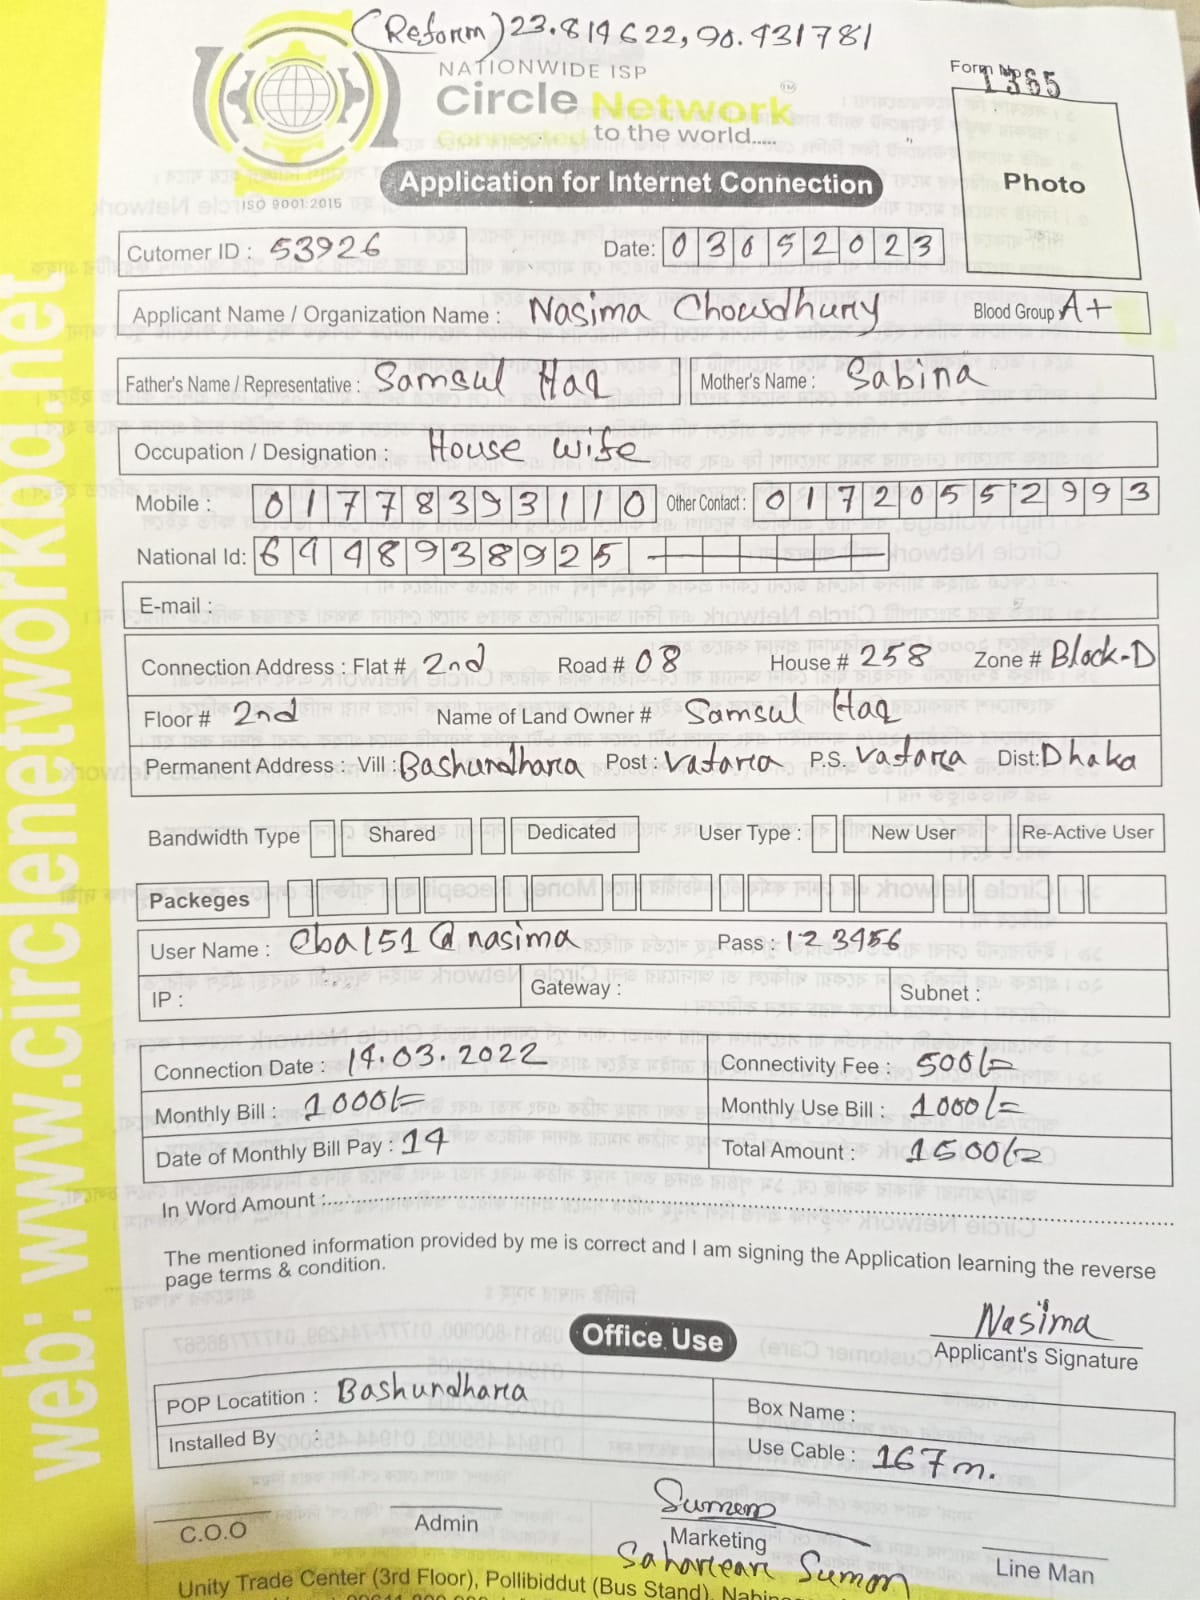 (Reform) 23.819622, 90.431781
NATIONWIDE ISP
Circle Network
Connected to the world.....
Form No 1365
Application for Internet Connection
Photo
ISO 9001:2015
Cutomer ID : 53926 Date: 03052023
Applicant Name / Organization Name : Nasima Chowdhury Blood Group A+
Father's Name / Representative : Samsul Haq Mother's Name : Sabina
Occupation / Designation : House wife
Mobile : 01778393110 Other Contact : 01720552993
National Id: 6448938925
E-mail :
Connection Address : Flat # 2nd Road # 08 House # 258 Zone # Block-D
Floor # 2nd Name of Land Owner # Samsul Haq
Permanent Address : Vill : Bashundhara Post : Vatara P.S. Vatara Dist: Dhaka
Bandwidth Type Shared Dedicated User Type : New User Re-Active User
Packeges
User Name : cba151@nasima Pass : 123456
IP : Gateway : Subnet :
Connection Date : 14.03.2022 Connectivity Fee : 500/=
Monthly Bill : 1000/= Monthly Use Bill : 1000/=
Date of Monthly Bill Pay : 14 Total Amount : 1500/=
In Word Amount :
The mentioned information provided by me is correct and I am signing the Application learning the reverse
page terms & condition.
Nasima
Applicant's Signature
Office Use
POP Locatition : Bashundhara Box Name :
Installed By : Use Cable : 167 m.
C.O.O Admin Marketing Line Man
Sumon
Unity Trade Center (3rd Floor), Pollibiddut (Bus Stand),
web: www.circlenetworkbd.net